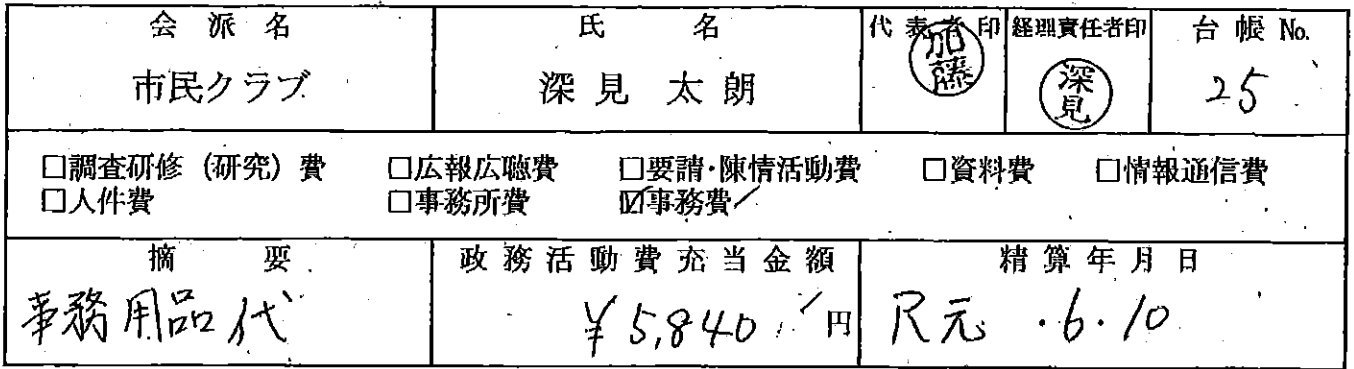 会派名 氏名 代表者印 経理責任者印 台帳 No.
市民クラブ 深見 太朗 加藤 深見 25
□調査研修(研究)費 □広報広聴費 □要請・陳情活動費 □資料費 □情報通信費
□人件費 □事務所費 ☑事務費
摘要 政務活動費充当金額 精算年月日
事務用品代 ¥5,840 円 R元.6.10